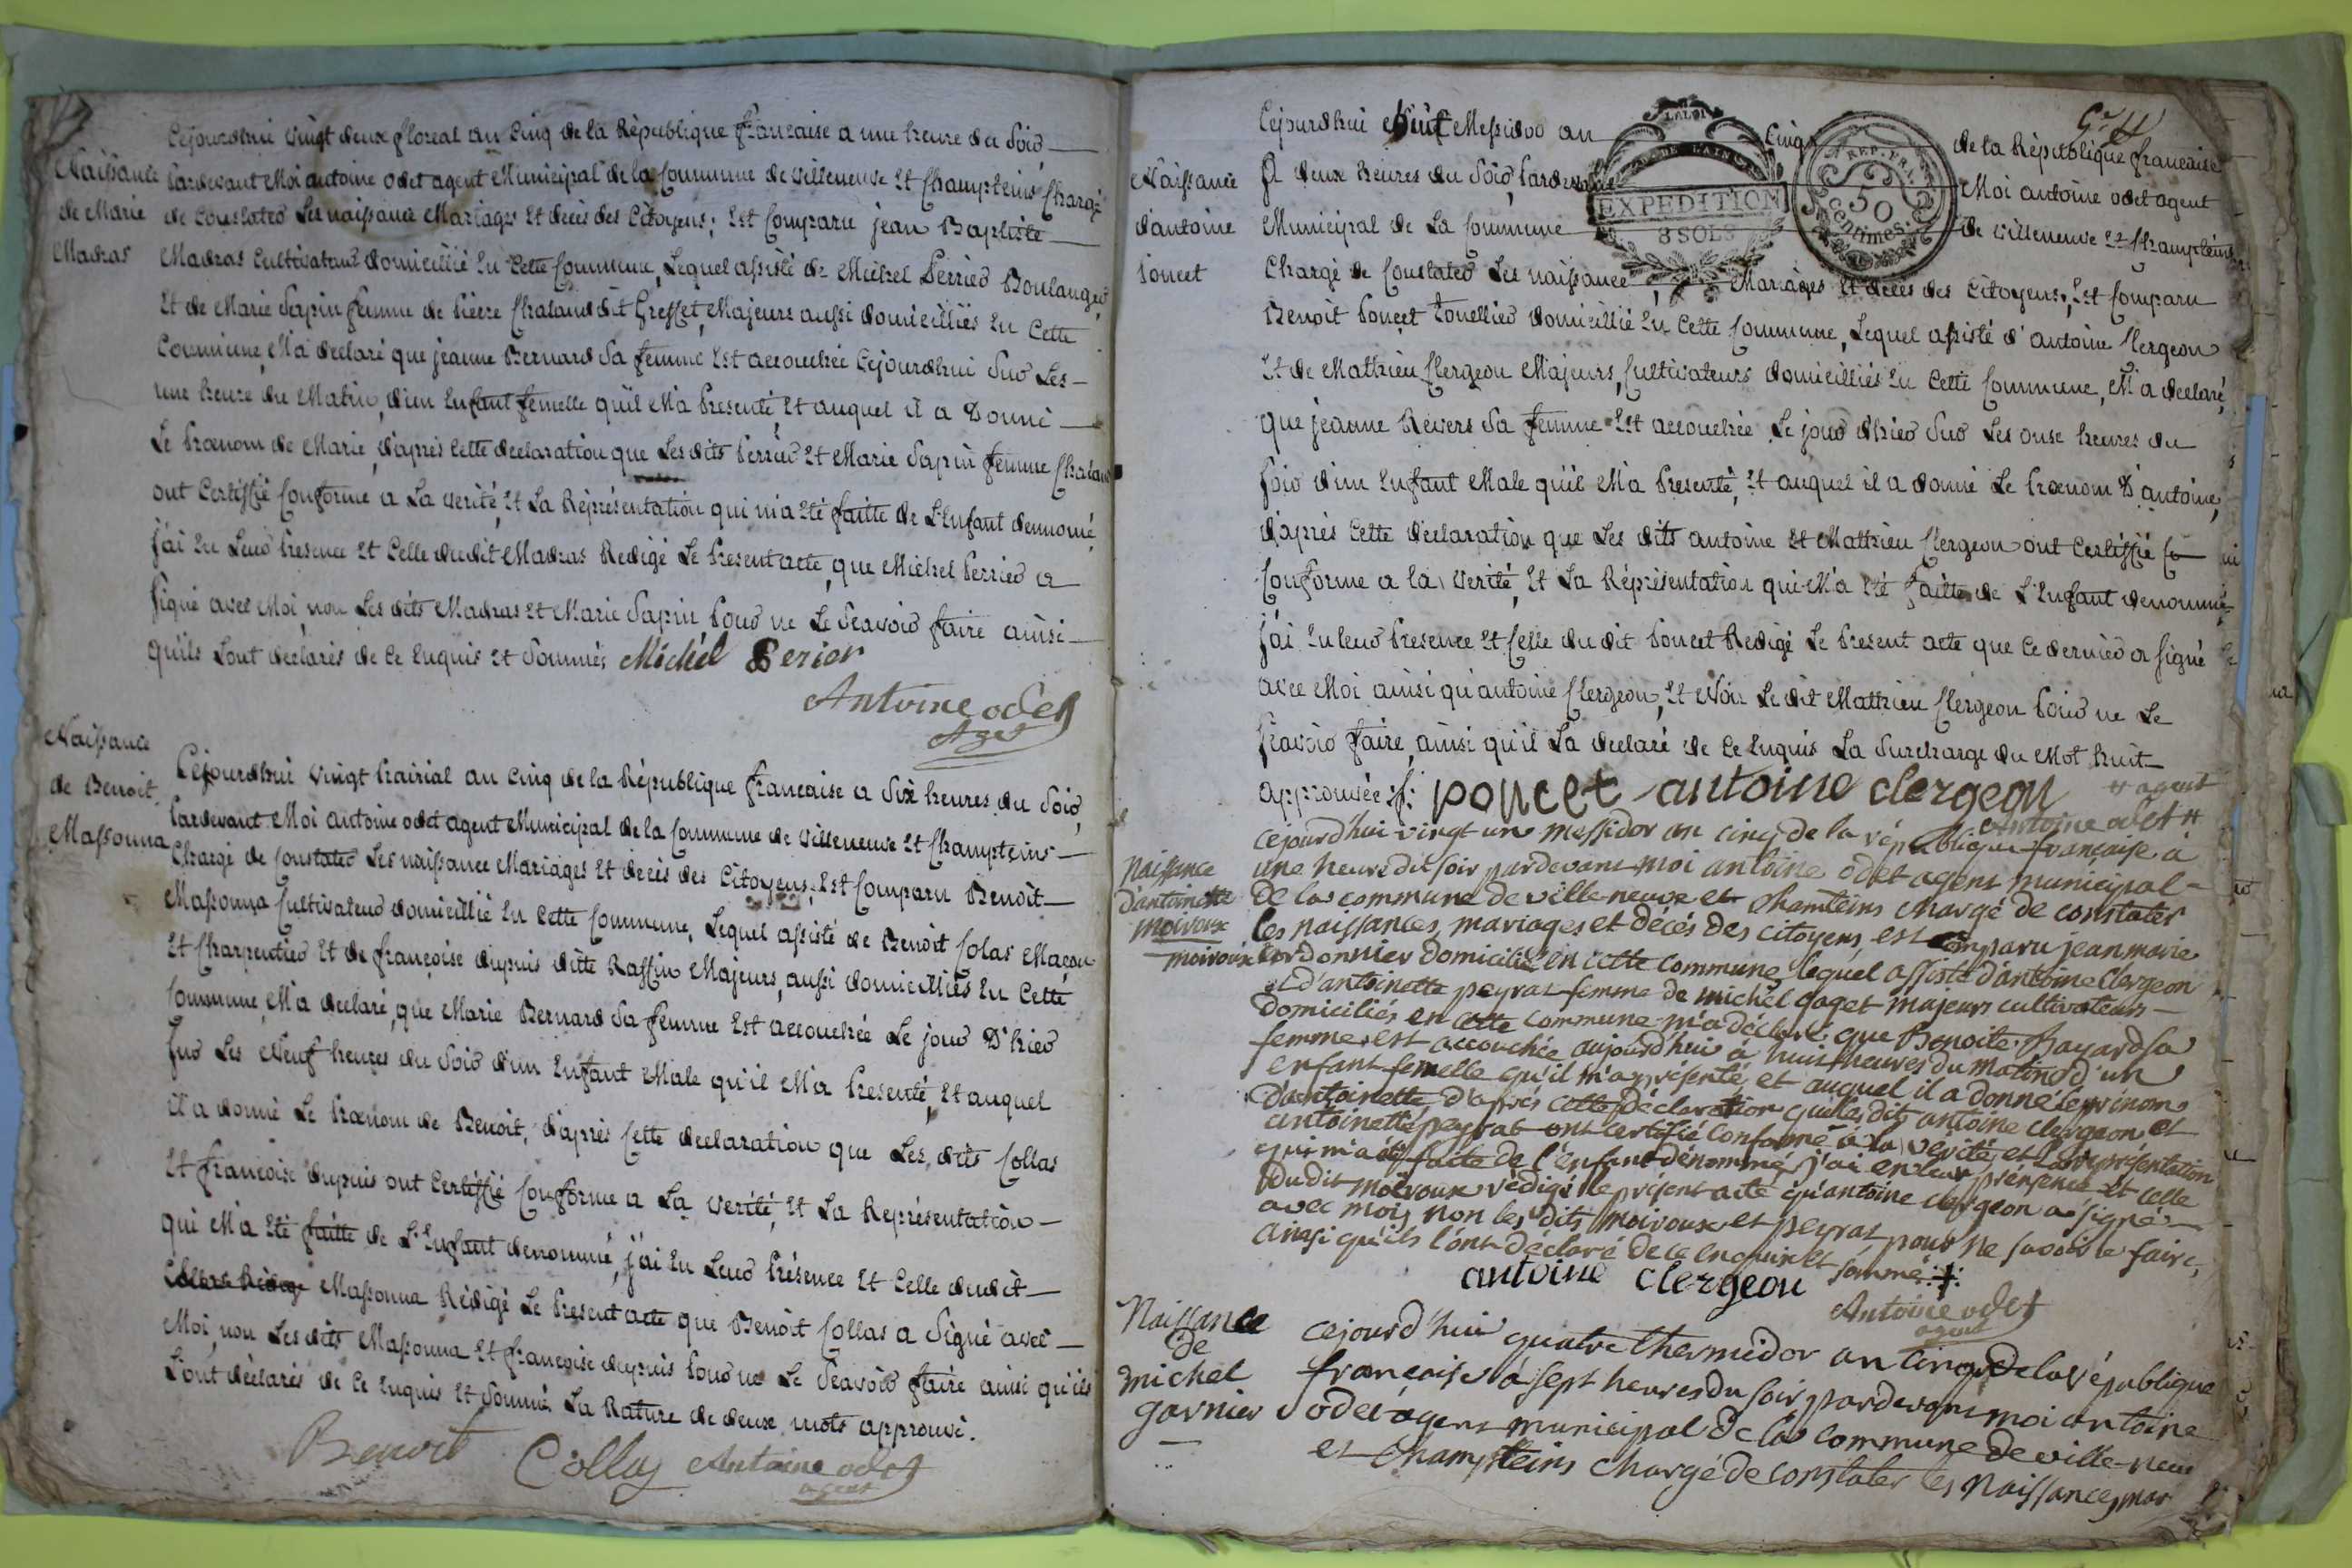 Naissance
de Marie
Madras
Cejourdhui vingt deux floreal an cinq de la République francaise a une heure du soir
Pardevant Moi antoine odet agent Municipal de la Commune de Villeneuve Et Champteins Chargé
de Constater Les naissance Mariages Et decés des Citoyens, Est Comparu jean Baptiste
Madras Cultivateur domicillié En Cette Commune, Lequel assisté de Michel Perrier Boulanger
Et de Marie Sapin femme de Pierre Chaland dit Greffet, Majeurs aussi domicilliés En Cette
Commune, M'a declaré que jeanne Bernard Sa femme Est accouchée Cejourdhui Sur Les
une heure du Matin, d'un Enfant femelle qu'il M'a Presenté, Et auquel il a Donné
Le Prœnom de Marie, d'aprés Cette declaration que Les dits Perrier Et Marie Sapin femme Chaland
ont Certiffié Conforme a La verité, Et La Réprésentation qui m'a Eté faitte de L'Enfant denommé,
j'ai En Leur Presence Et Celle dudit Madras Redigé Le Present acte, que Michel Perrier a
Signé avec Moi, non Les dits Madras Et Marie Sapin Pour ne Le Sçavoir faire ainsi
qu'ils Lont declarés de Ce Enquis Et Sommés Michel Perier
Antoine odet
Aget
Naissance
de Benoit
Massonna
Cejourdhui vingt Prairial an Cinq de la République francaise a Six heures du Soir,
Pardevant Moi antoine odet agent Municipal de la Commune de Villeneuve Et Champteins
Chargé de Constater Les naissance Mariages Et decés des Citoyens, Est Comparu Benoit
Massonna Cultivateur domicillié En Cette Commune, Lequel assisté de Benoit Colas Maçon
Et Charpentier Et de francoise dupuis ditte Raffin Majeurs, aussi domicilliés En Cette
Commune, M'a declaré, que Marie Bernard Sa femme Est accouchée Le jour D'hier
Sur Les Neuf heures du Soir d'un Enfant Male qu'il M'a Presenté, Et auquel
il a donné Le Prœnom de Benoit, d'aprés Cette declaration que Les dits Collas
Et francoise dupuis ont Certiffié Conforme a La Verité, Et La Représentation
qui M'a Eté faitte de L'Enfant denommé, j'ai En Leur Présence Et Celle dudit
Collas Rédigé Massonna Rédigé Le Present acte que Benoit Collas a Signé avec
Moi, non Les dits Massonna Et francoise dupuis Pour ne Le Sçavoir faire ainsi qu'ils
L'ont déclarés de Ce Enquis Et Sommé. La Rature de deux mots approuvé.
Benoit Collas Antoine odet
agent
Naissance
d'antoine
Poncet
Cejourdhui huit Messidor an Cinq de la République francaise
A deux heures du Soir, Pardevant Moi antoine odet agent
Municipal de La Commune de Villeneuve Et Champteins
LA LOI
EXPEDITION
3 SOLS
REP. FRA.
50
centimes.
Chargé de Constater Les naissance, Mariages Et decés des Citoyens, Est Comparu
Benoit Poncet Tonellier domicillié En Cette Commune, Lequel assisté d'antoine Clergeon
Et de Mathieu Clergeon Majeurs, Cultivateurs domicilliés En Cette Commune, M'a declaré,
que jeanne Revers Sa femme Est accouchée Le jour d'hier Sur Les onse heures du
Soir d'un Enfant Male qu'il M'a Presenté, Et auquel il a donné Le Prœnom D'antoine,
d'aprés Cette declaration que Les dits antoine Et Mathieu Clergeon ont Certiffié Co
Conforme a la Verité, Et La Réprésentation qui M'a Eté faitte de L'Enfant denommé,
j'ai En leur Presence Et Celle du dit Poncet Redigé Le Present acte que Ce dernier a Signé
avec Moi ainsi qu'antoine Clergeon, Et Non Le dit Mathieu Clergeon Pour ne Le
Sçavoir faire, ainsi qu'il La declaré de Ce Enquis La Surcharge du Mot huit
approuvée poncet antoine clergeon
agent
Antoine odet
Naissance
d'antoinette
moiroux
cejourd'hui vingt un messidor an cinq de la république française à
une heure du soir pardevant moi antoine odet agent municipal
de la commune de ville-neuve et Chamteins chargé de constater
les naissances, mariages et décés des citoyens, est comparu jean marie
moiroux cordonnier domicilié en cette commune, lequel assisté d'antoine Clergeon
et d'antoinette peyrat femme de michel goget majeurs cultivateurs
domiciliés en cette commune m'a déclaré que Benoite Bayard sa
femme est accouchée aujourd'hui à huit heures du matin d'un
enfant femelle qu'il m'a présenté, et auquel il a donné le prénom
d'antoinette d'aprés cette déclaration que les dits antoine clergeon et
antoinette peyrat ont certifié conforme à la vérité, et la représentation
qui m'a été faite de l'enfant dénommé, j'ai en leur présence et celle
dudit moiroux rédigé le présent acte qu'antoine clergeon a signé
avec moi, non les dits moiroux et peyrat pour ne savoir le faire,
ainsi qu'ils l'ont déclaré de ce enquis et sommé
antoine clergeon
Antoine odet
agent
Naissance
de
michel
garnier
cejourd'hui quatre thermidor an cinq de la république
française à sept heures du soir, pardevant moi antoine
odet agent municipal de la commune de ville-neuve
et Champteins chargé de constater les naissances, mar